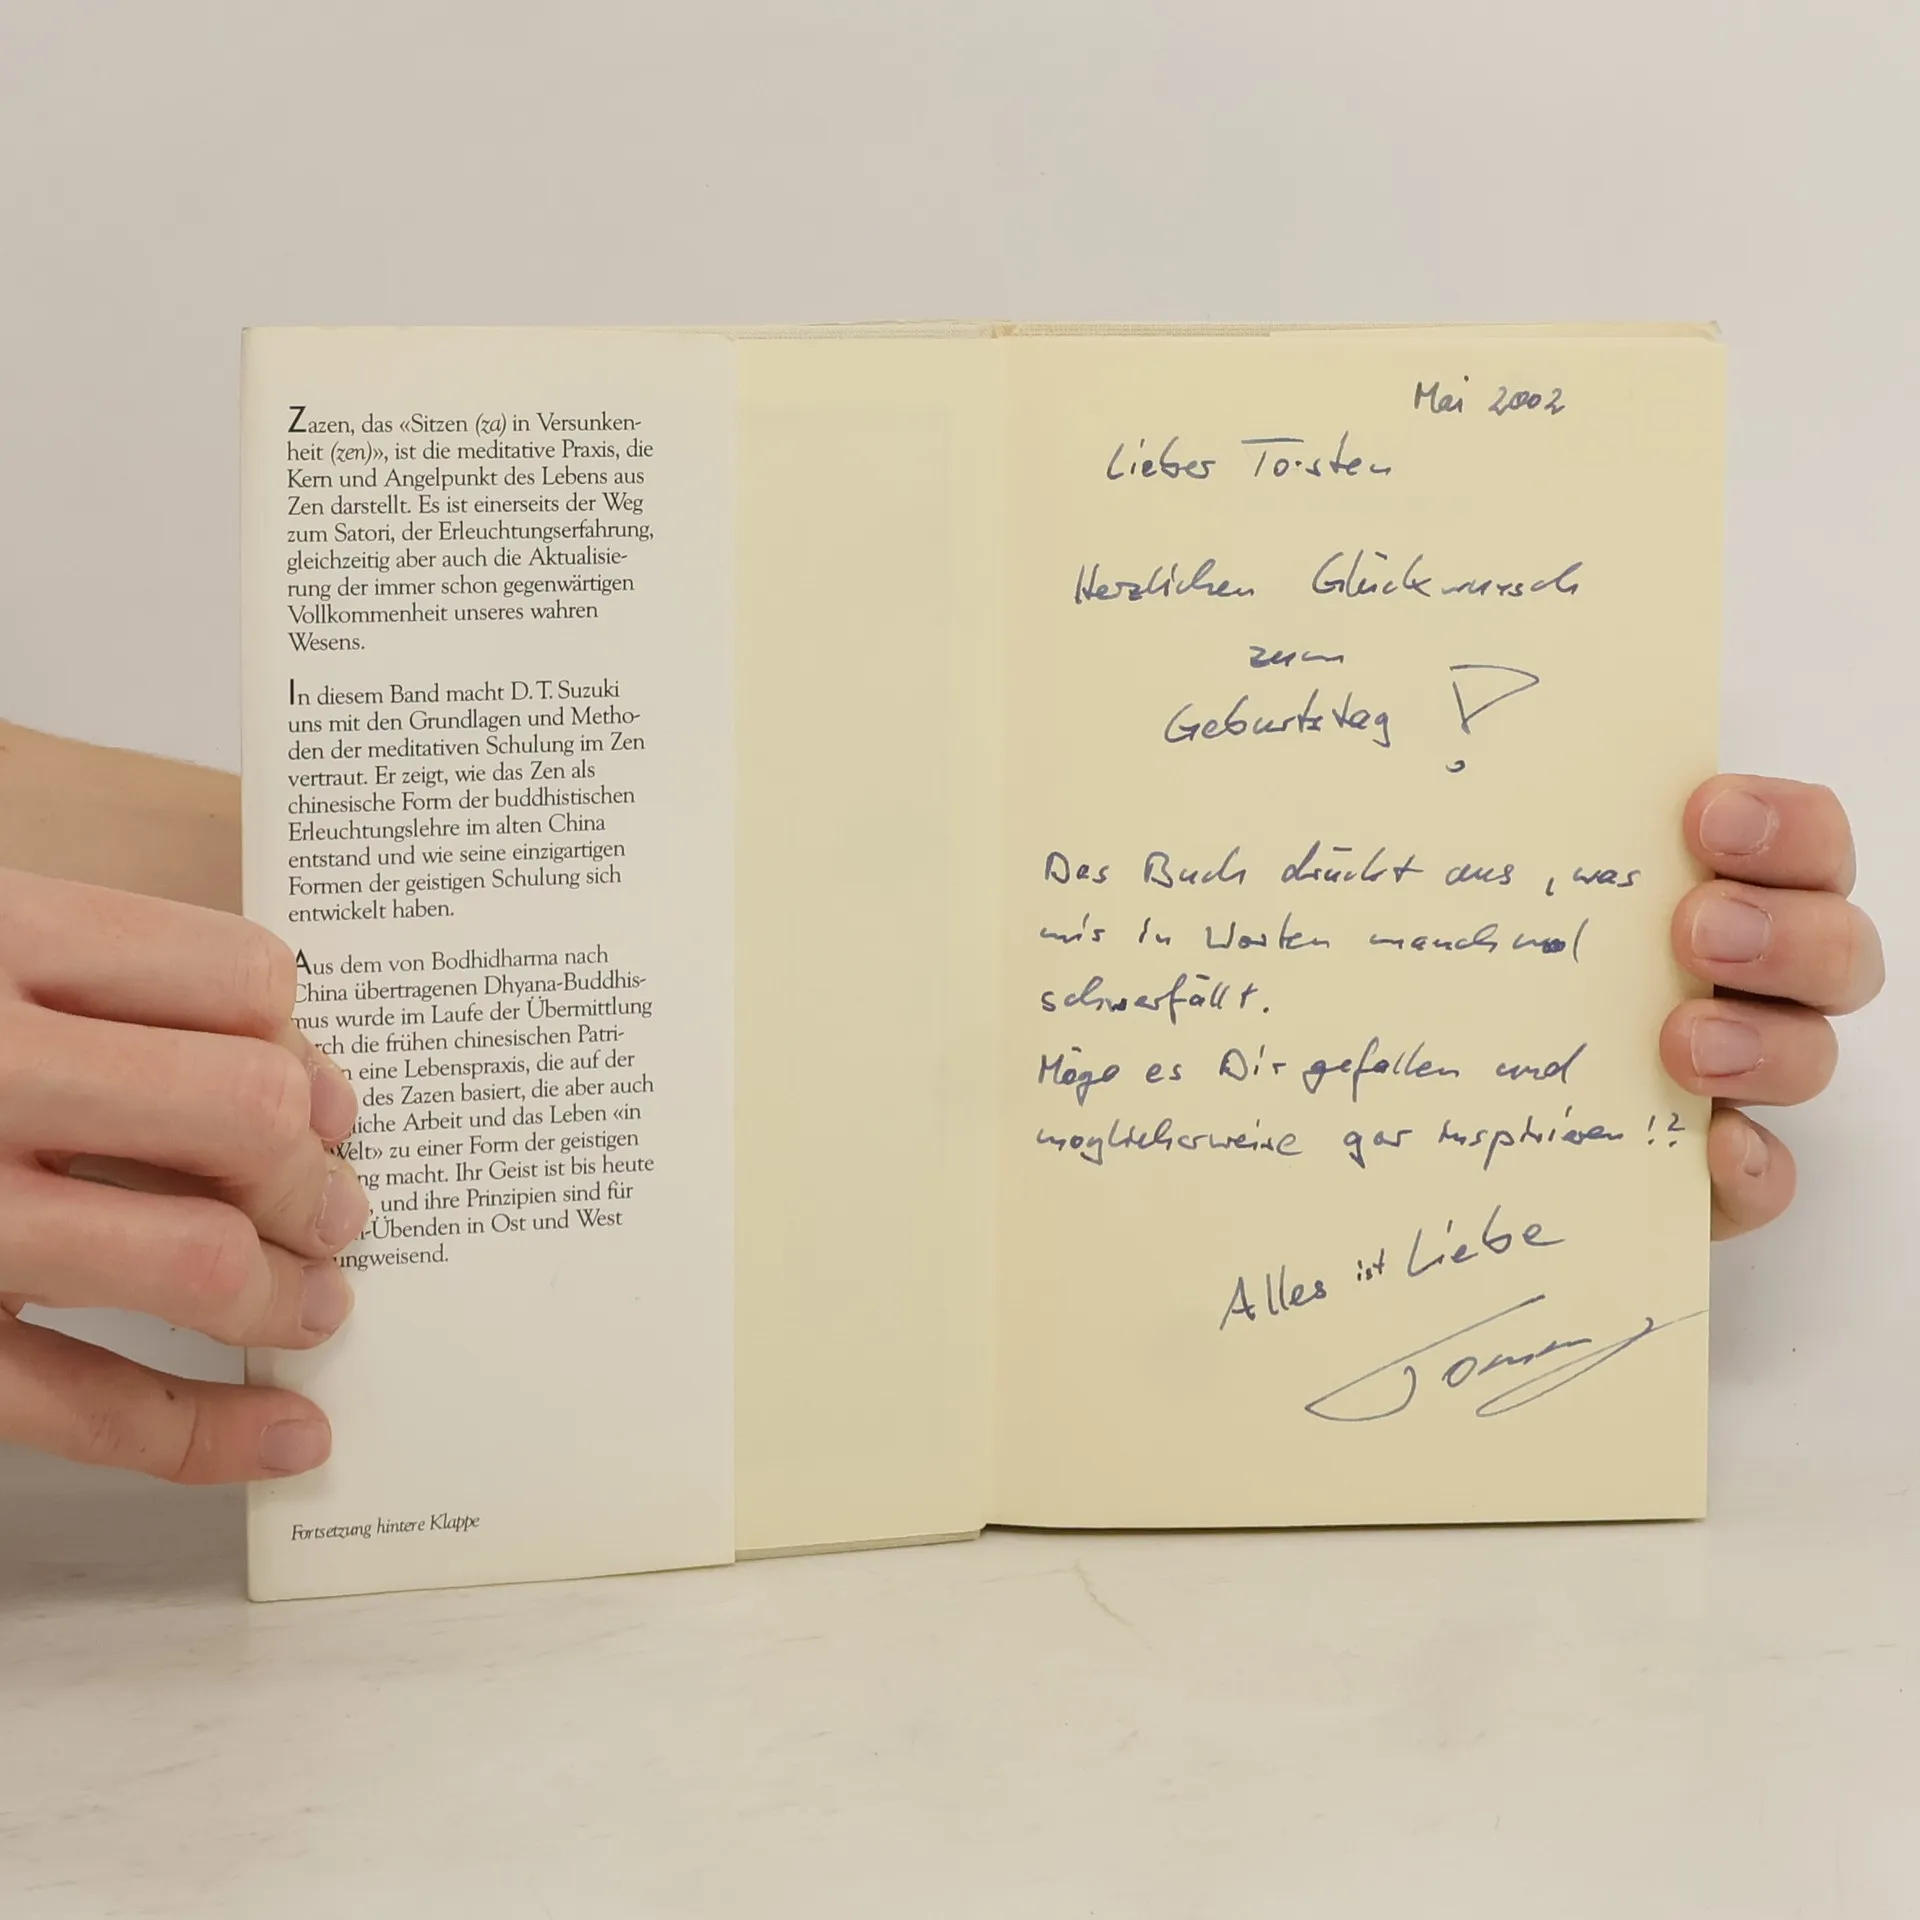 Zazen, das «Sitzen (za) in Versunken-
heit (zen)», ist die meditative Praxis, die
Kern und Angelpunkt des Lebens aus
Zen darstellt. Es ist einerseits der Weg
zum Satori, der Erleuchtungserfahrung,
gleichzeitig aber auch die Aktualisie-
rung der immer schon gegenwärtigen
Vollkommenheit unseres wahren
Wesens.
In diesem Band macht D. T. Suzuki
uns mit den Grundlagen und Metho-
den der meditativen Schulung im Zen
vertraut. Er zeigt, wie das Zen als
chinesische Form der buddhistischen
Erleuchtungslehre im alten China
entstand und wie seine einzigartigen
Formen der geistigen Schulung sich
entwickelt haben.
Aus dem von Bodhidharma nach
China übertragenen Dhyana-Buddhis-
mus wurde im Laufe der Übermittlung
die frühen chinesischen Patri-
eine Lebenspraxis, die auf der
des Zazen basiert, die aber auch
Arbeit und das Leben «in
Welt» zu einer Form der geistigen
macht. Ihr Geist ist bis heute
, und ihre Prinzipien sind für
-Übenden in Ost und West
Fortsetzung hintere Klappe
Mai 2002
Lieber Torsten
Herzlichen Glückwunsch
zum
Geburtstag !
Das Buch drückt aus, was
mir in Worten manchmal
schwerfällt.
Möge es Dir gefallen und
möglicherweise gar inspirieren !?
Alles ist Liebe